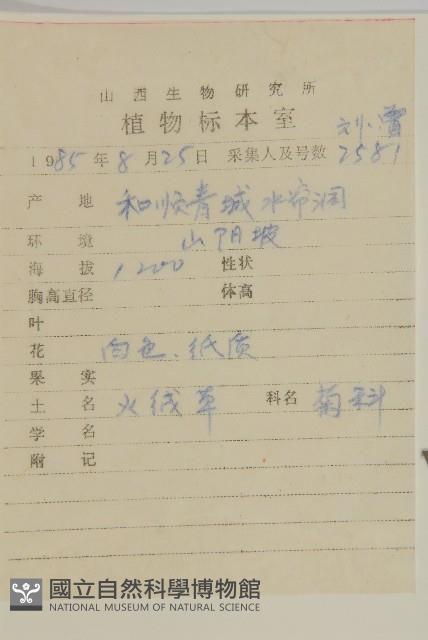 山西生物研究所
植物标本室
刘
1985年8月25日 采集人及号数 2581
产地 和顺青城水帘洞
环境 山阳坡
海拔 1200 性状
胸高直径 体高
叶
花 白色、纸质
果实
土名 火绒草 科名 菊科
学名
附记
國立自然科學博物館
NATIONAL MUSEUM OF NATURAL SCIENCE